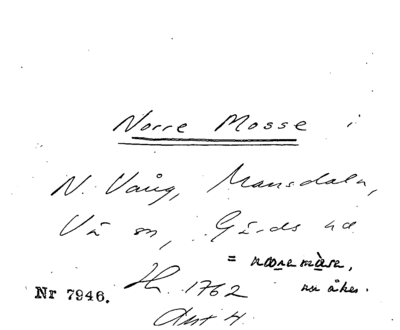 Norre Mosse i
N. Vång, Mansdala,
Vä sn, Gärds hd
= noremåse,
Nr 7946. 1762 nu åker.
Akt 4